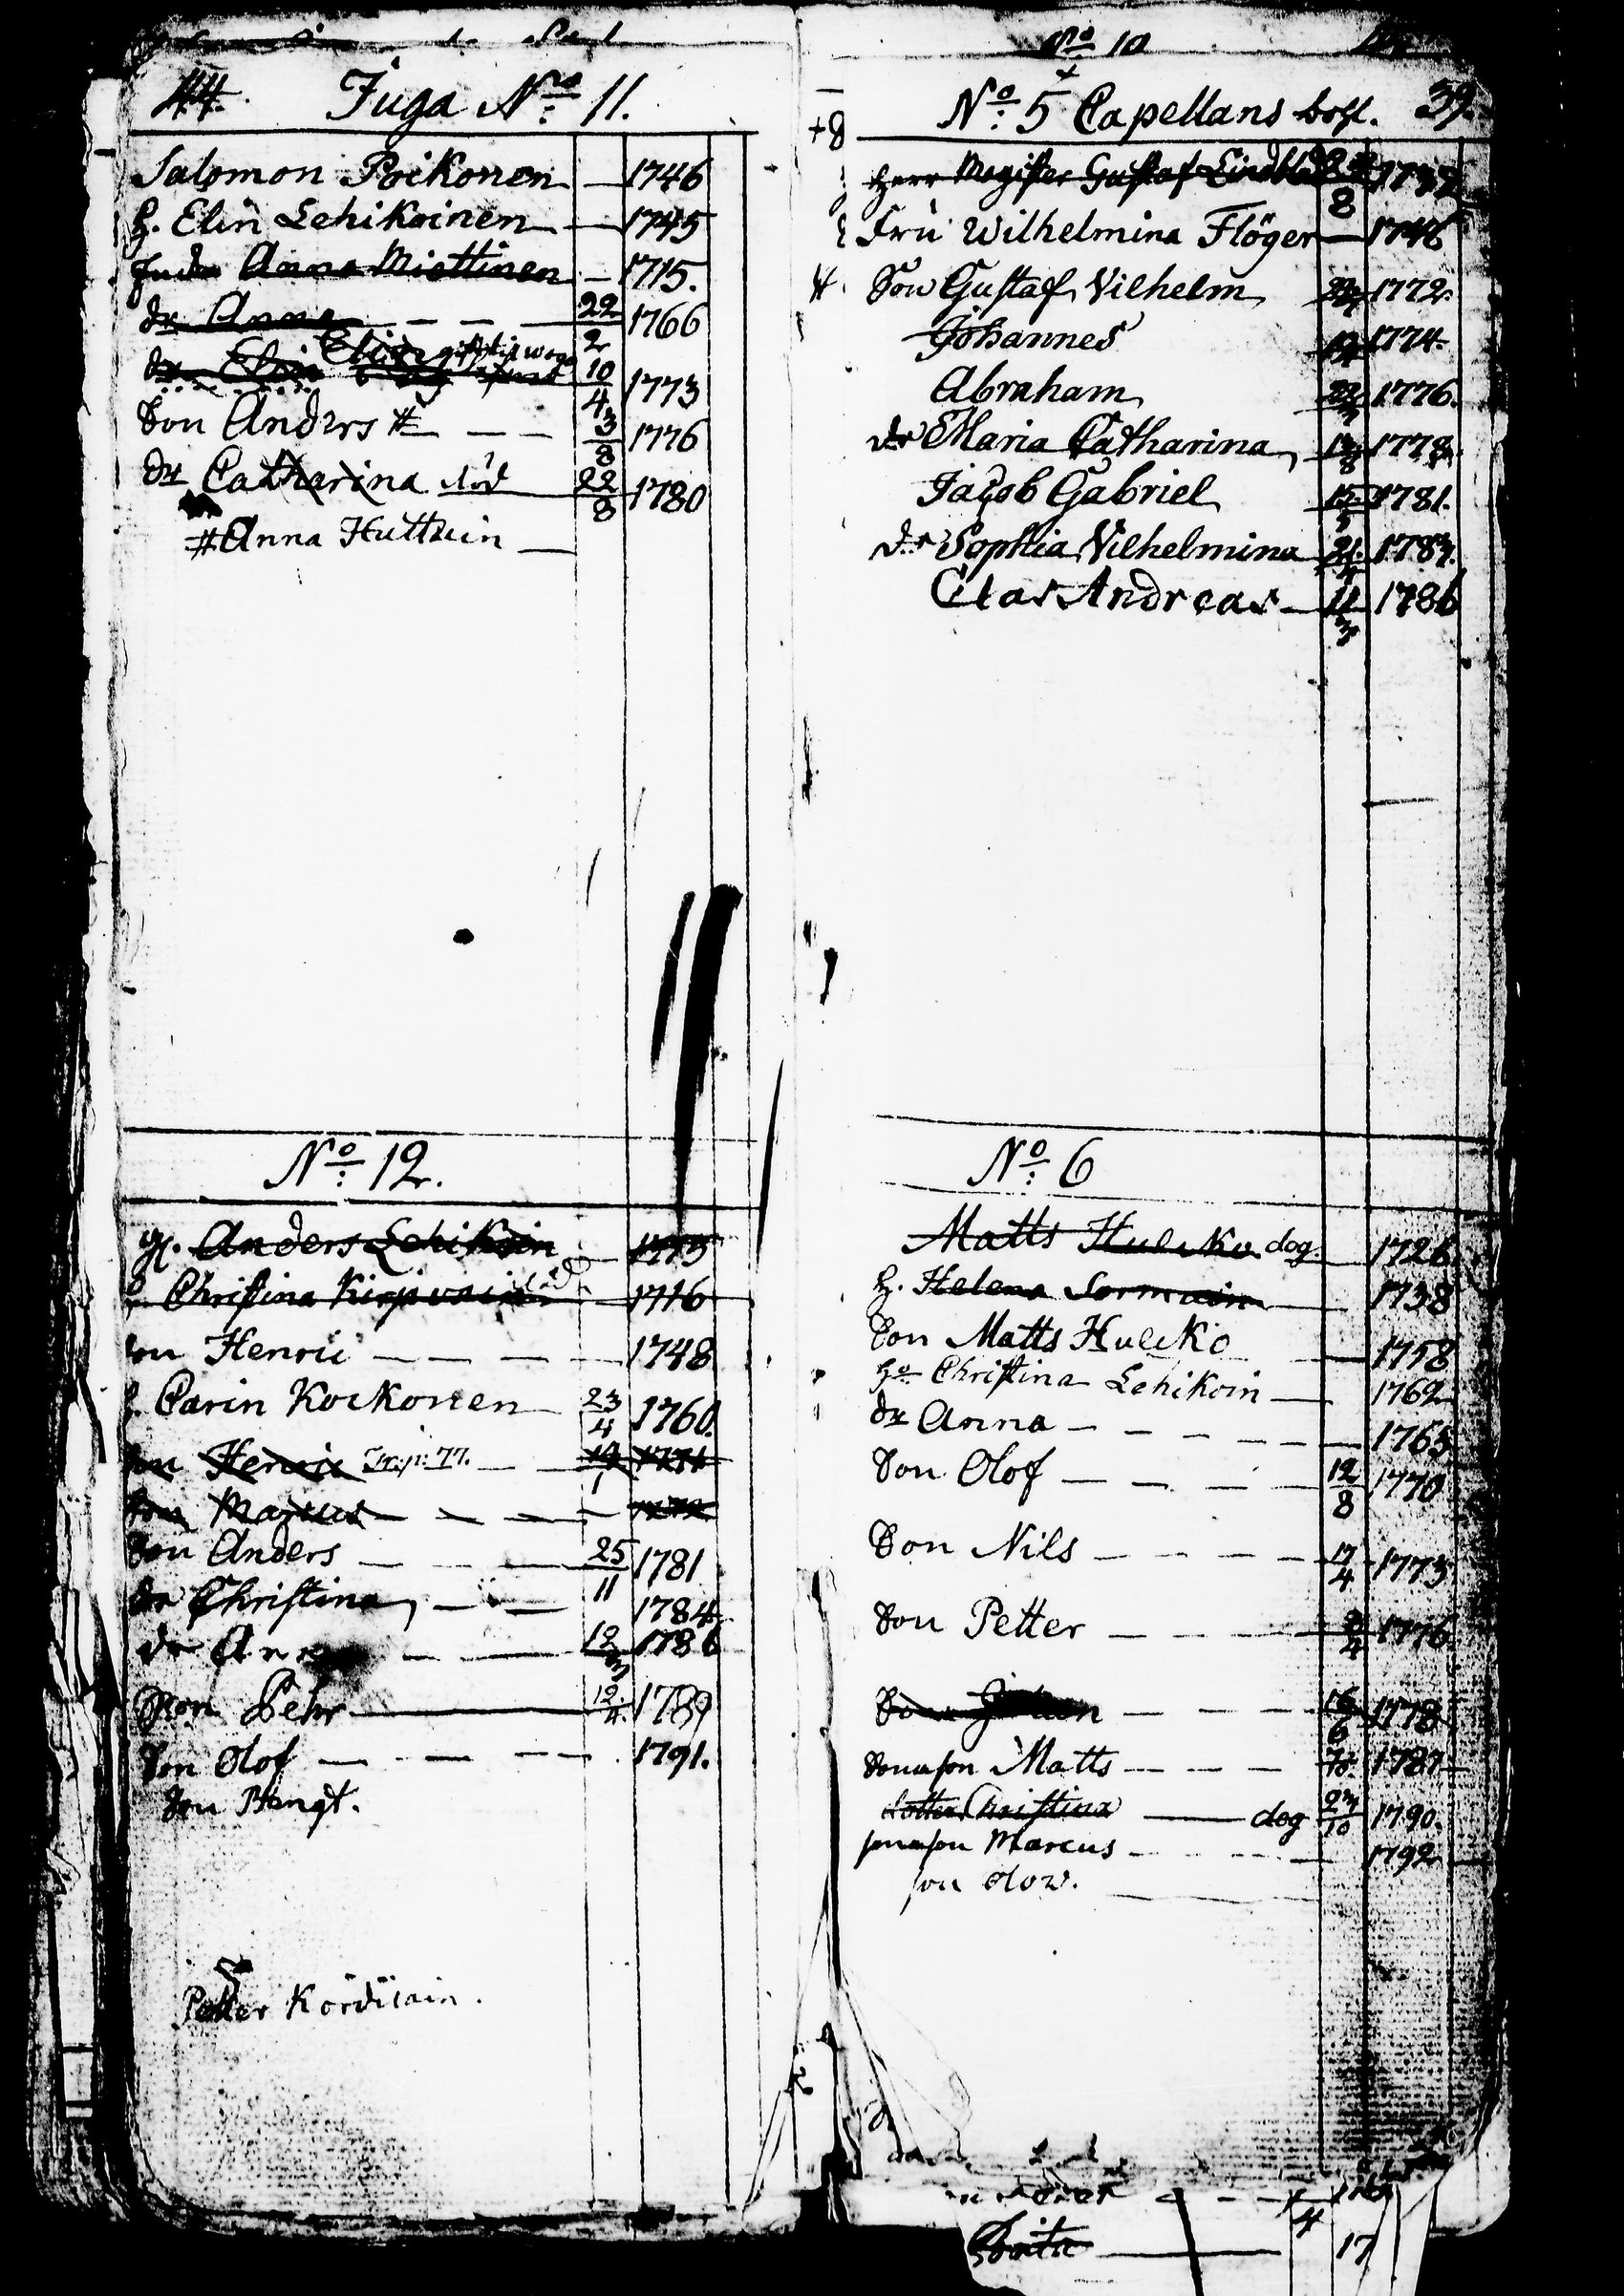 44. Juga No: 11.
Salomon Poikonen — 1746
h. Elin Lehikoinen — 1745
Anna Miettinen — 1715.
dr Anna — — — 22/2 1766
dr Elin Elin 10/4 1773
Son Anders # — — 3/8 1776
dr Catharina död 22/8 1780
# Anna Huttuin —
No: 12.
gl. Anders Lehikoin 1715
h. Christina död 1716
Son Henric — — — — 1748
h. Carin Kockonen — 23/4 1760.
Son Henric 77. — 19/1 1771
Son Marcus — — — —
Son Anders — — — 25/11 1781
dr Christina — — 1784.
dr Anna — — 12/3 1786
Son Pehr — 12/4. 1789
Son Olof — — — — 1791.
Son Bengt.
Petter
No 10
No: 5 Capellans bohl. 39.
Herr Magister Gustaf Lindblad 8 1737
Fru Wilhelmina Flöger — 1746
Son Gustaf Vilhelm 1772.
Johannes 1774.
Abraham 1776.
dr Maria Catharina 1778.
Jacob Gabriel 15/5 1781.
dr Sophia Vilhelmina 21/4 1783.
Clas Andreas — 11/3 1786
No: 6
Matts dog. 1726
h. Helena Sormuin — 1738
Son Matts — 1758
hu Christina Lehikoin — 1762
dr Anna — — — — — 1765
Son Olof — — — — 12/8 1770
Son Nils — — — — 17/4 1773
Son Petter — — — — 3/4 1776
Son — — — 16/6 1778
Sonason Matts — — — 1787
dotter Christina — dog 23/10 1790.
sonason Marcus — — — — 1792
son Olow.
Brita — 17